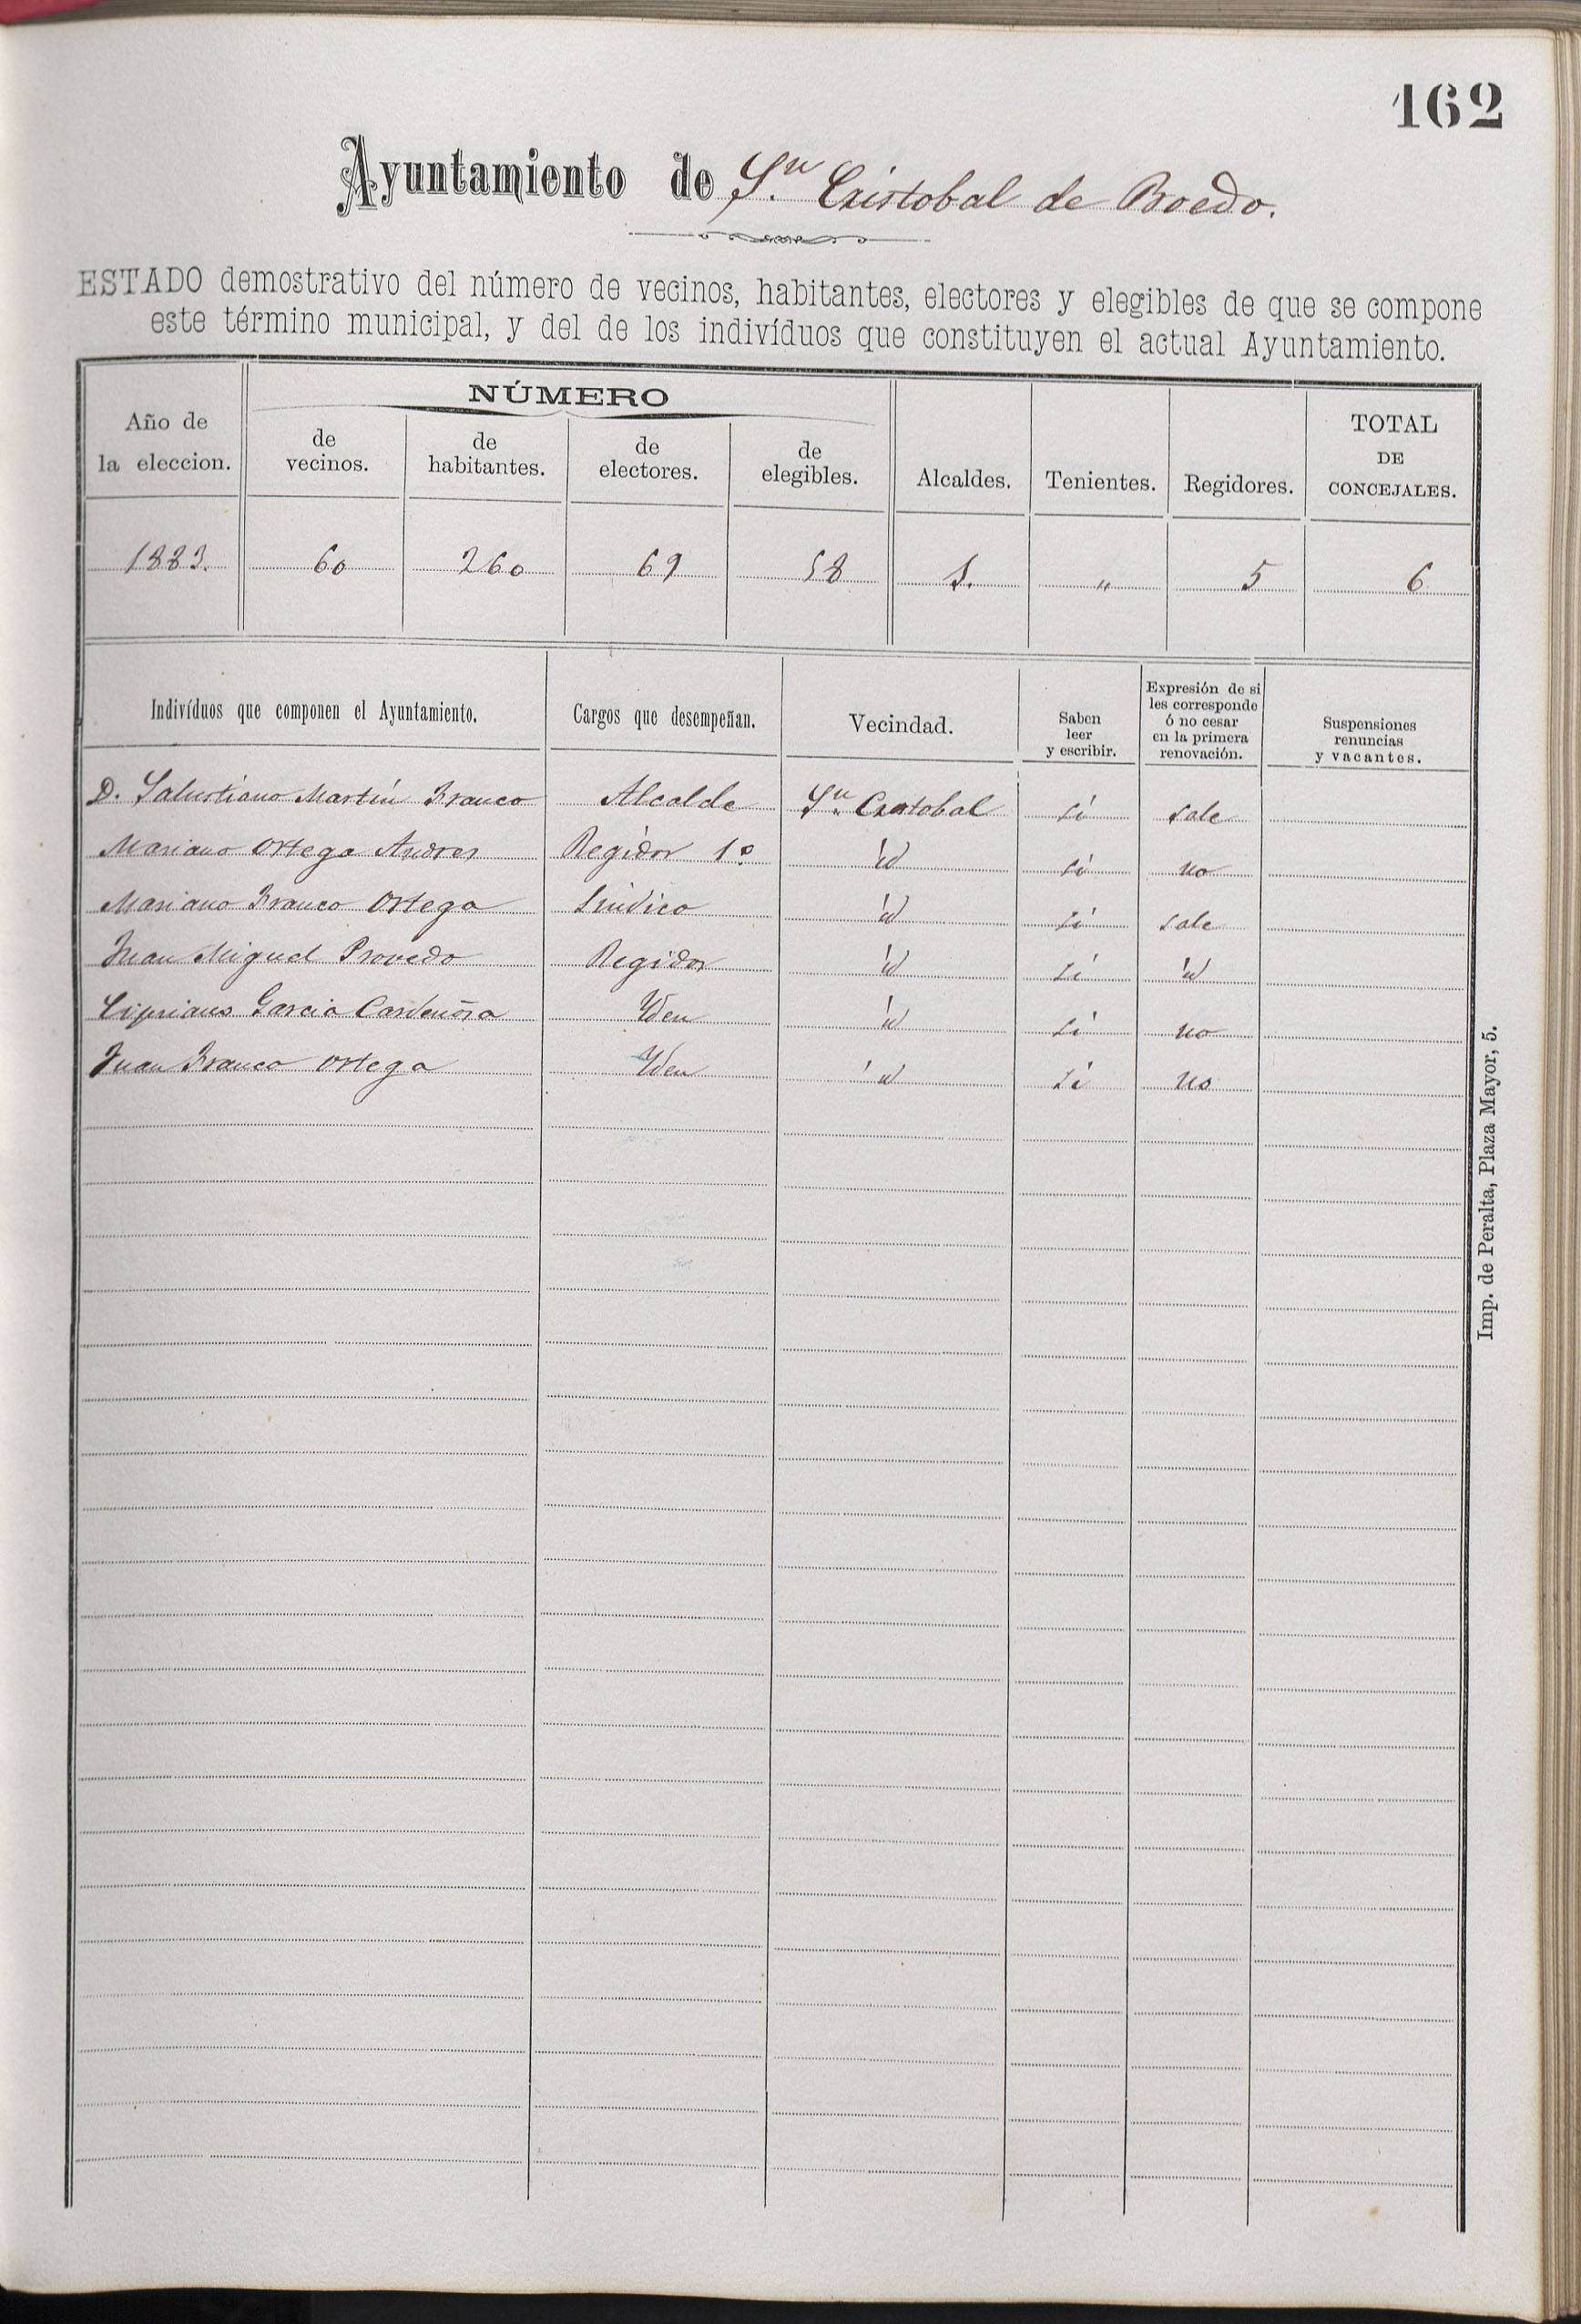 162
Ayuntamiento de Sn. Cristobal de Boedo.
ESTADO demostrativo del número de vecinos, habitantes, electores y elegibles de que se compone
este término municipal, y del de los indivíduos que constituyen el actual Ayuntamiento.
Año de la eleccion. NÚMERO de vecinos. de habitantes. de electores. de elegibles. Alcaldes. Tenientes. Regidores. TOTAL DE CONCEJALES.
1883. 60 260 69 58 1. " 5 6
Indivíduos que componen el Ayuntamiento. Cargos que desempeñan. Vecindad. Saben leer y escribir. Expresión de si les corresponde ó no cesar en la primera renovación. Suspensiones renuncias y vacantes.
D. Salustiano Martín Franco Alcalde Sn. Cristobal si sale
Mariano Ortega Andres Regidor 1º id si no
Mariano Franco Ortega Sindico id si sale
Juan Miguel Provedo Regidor id si id
Cipriano Garcia Cardeñosa Yden id si no
Juan Franco Ortega Yden id si no
Imp. de Peralta, Plaza Mayor, 5.